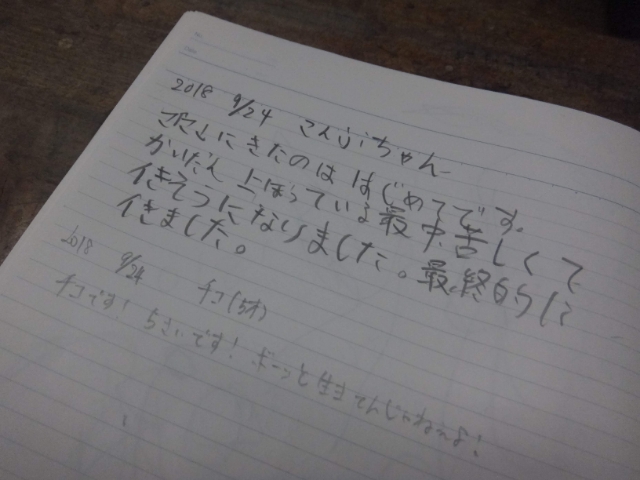 2018 9/24 こんぶちゃん
ここにきたのは はじめてです。
かいだん 上ぼっている最中苦しくて
イきそうになりました。最終的に
イきました。
2018 9/24 チコ(5才)
チコです! 5さいです! ボーっと生きてんじゃねぇよ!